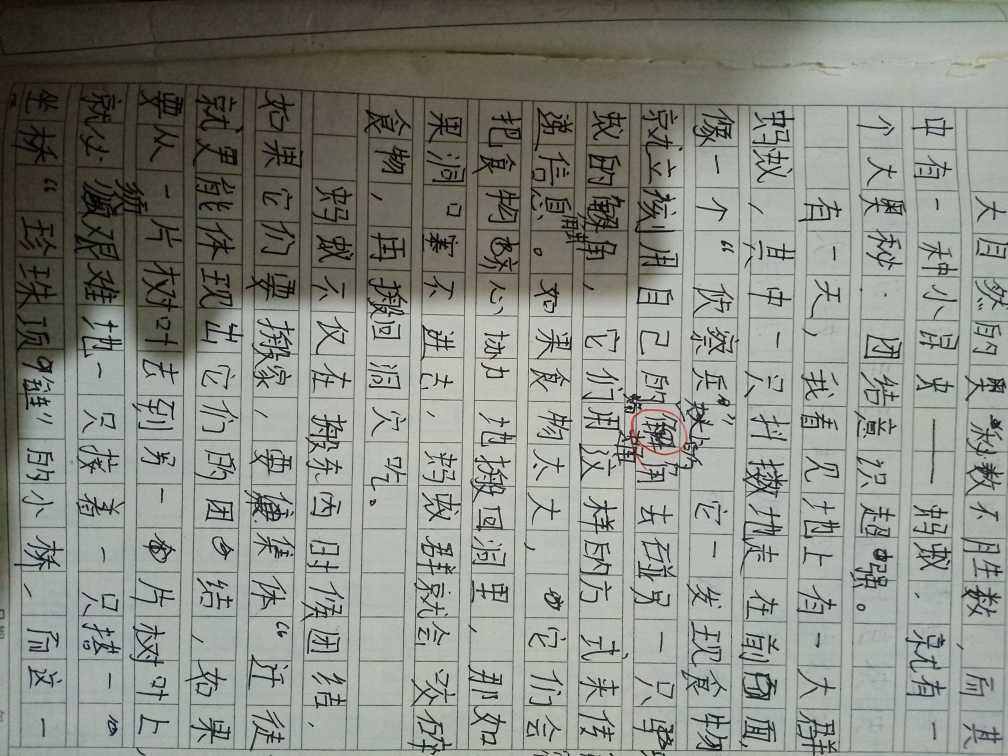 大自然的奥秘数不胜数，而其
中有一种小昆虫——蚂蚁，就有一
个大奥秘：团结意识超强。
有一天，我看见地上有一大群
蚂蚁，其中一只抖擞地走在前面，
像一个“侦察兵”，它一发现食物
就立刻用自己的触角去碰另一只蚂
蚁的触角，它们用这样的方式来传
递信息。如果食物太大，它们会
把食物齐心协力地搬回洞里，那如
果洞口塞不进去，蚂蚁群就会咬碎
食物，再搬回洞穴吃。
蚂蚁不仅在搬东西时候团结，
如果它们要搬家，要集体“迁徙
就更能体现出它们的团结，如果
要从一片树叶去到另一片树叶上，
就必须艰难地一只接着一只搭一
坐桥“珍珠项链”的小桥，而这一